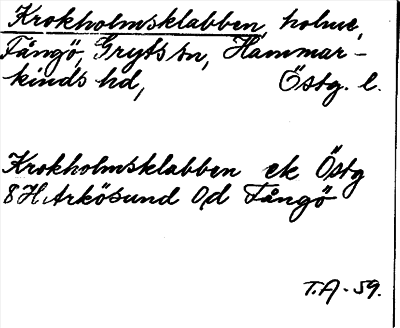 Krokholmsklabben, holme,
Fångö, Gryts sn, Hammar-
kinds hd, Östg. l.
Krokholmsklabben ek Östg
8 H. Arkösund Od Fångö
T.A - 59.